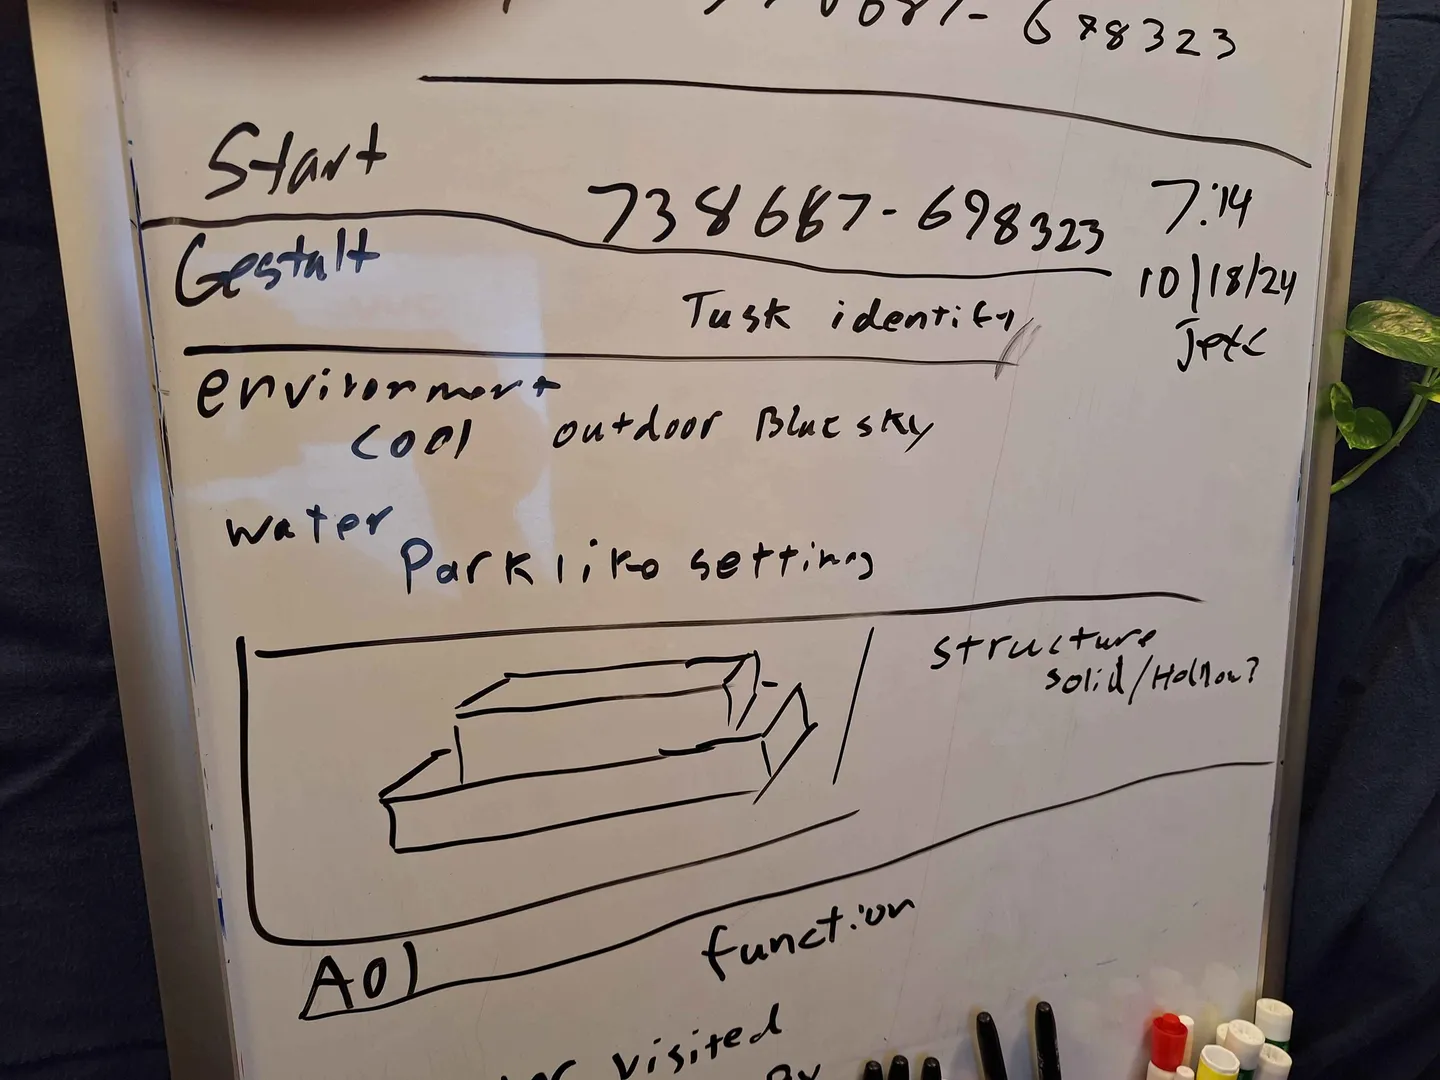 678323
Start
738667-698323 7:14
Gestalt
10/18/24
Task identify
environment
cool outdoor Blue sky
water
Park like setting
structure
solid/Hollow?
function
A01
visited